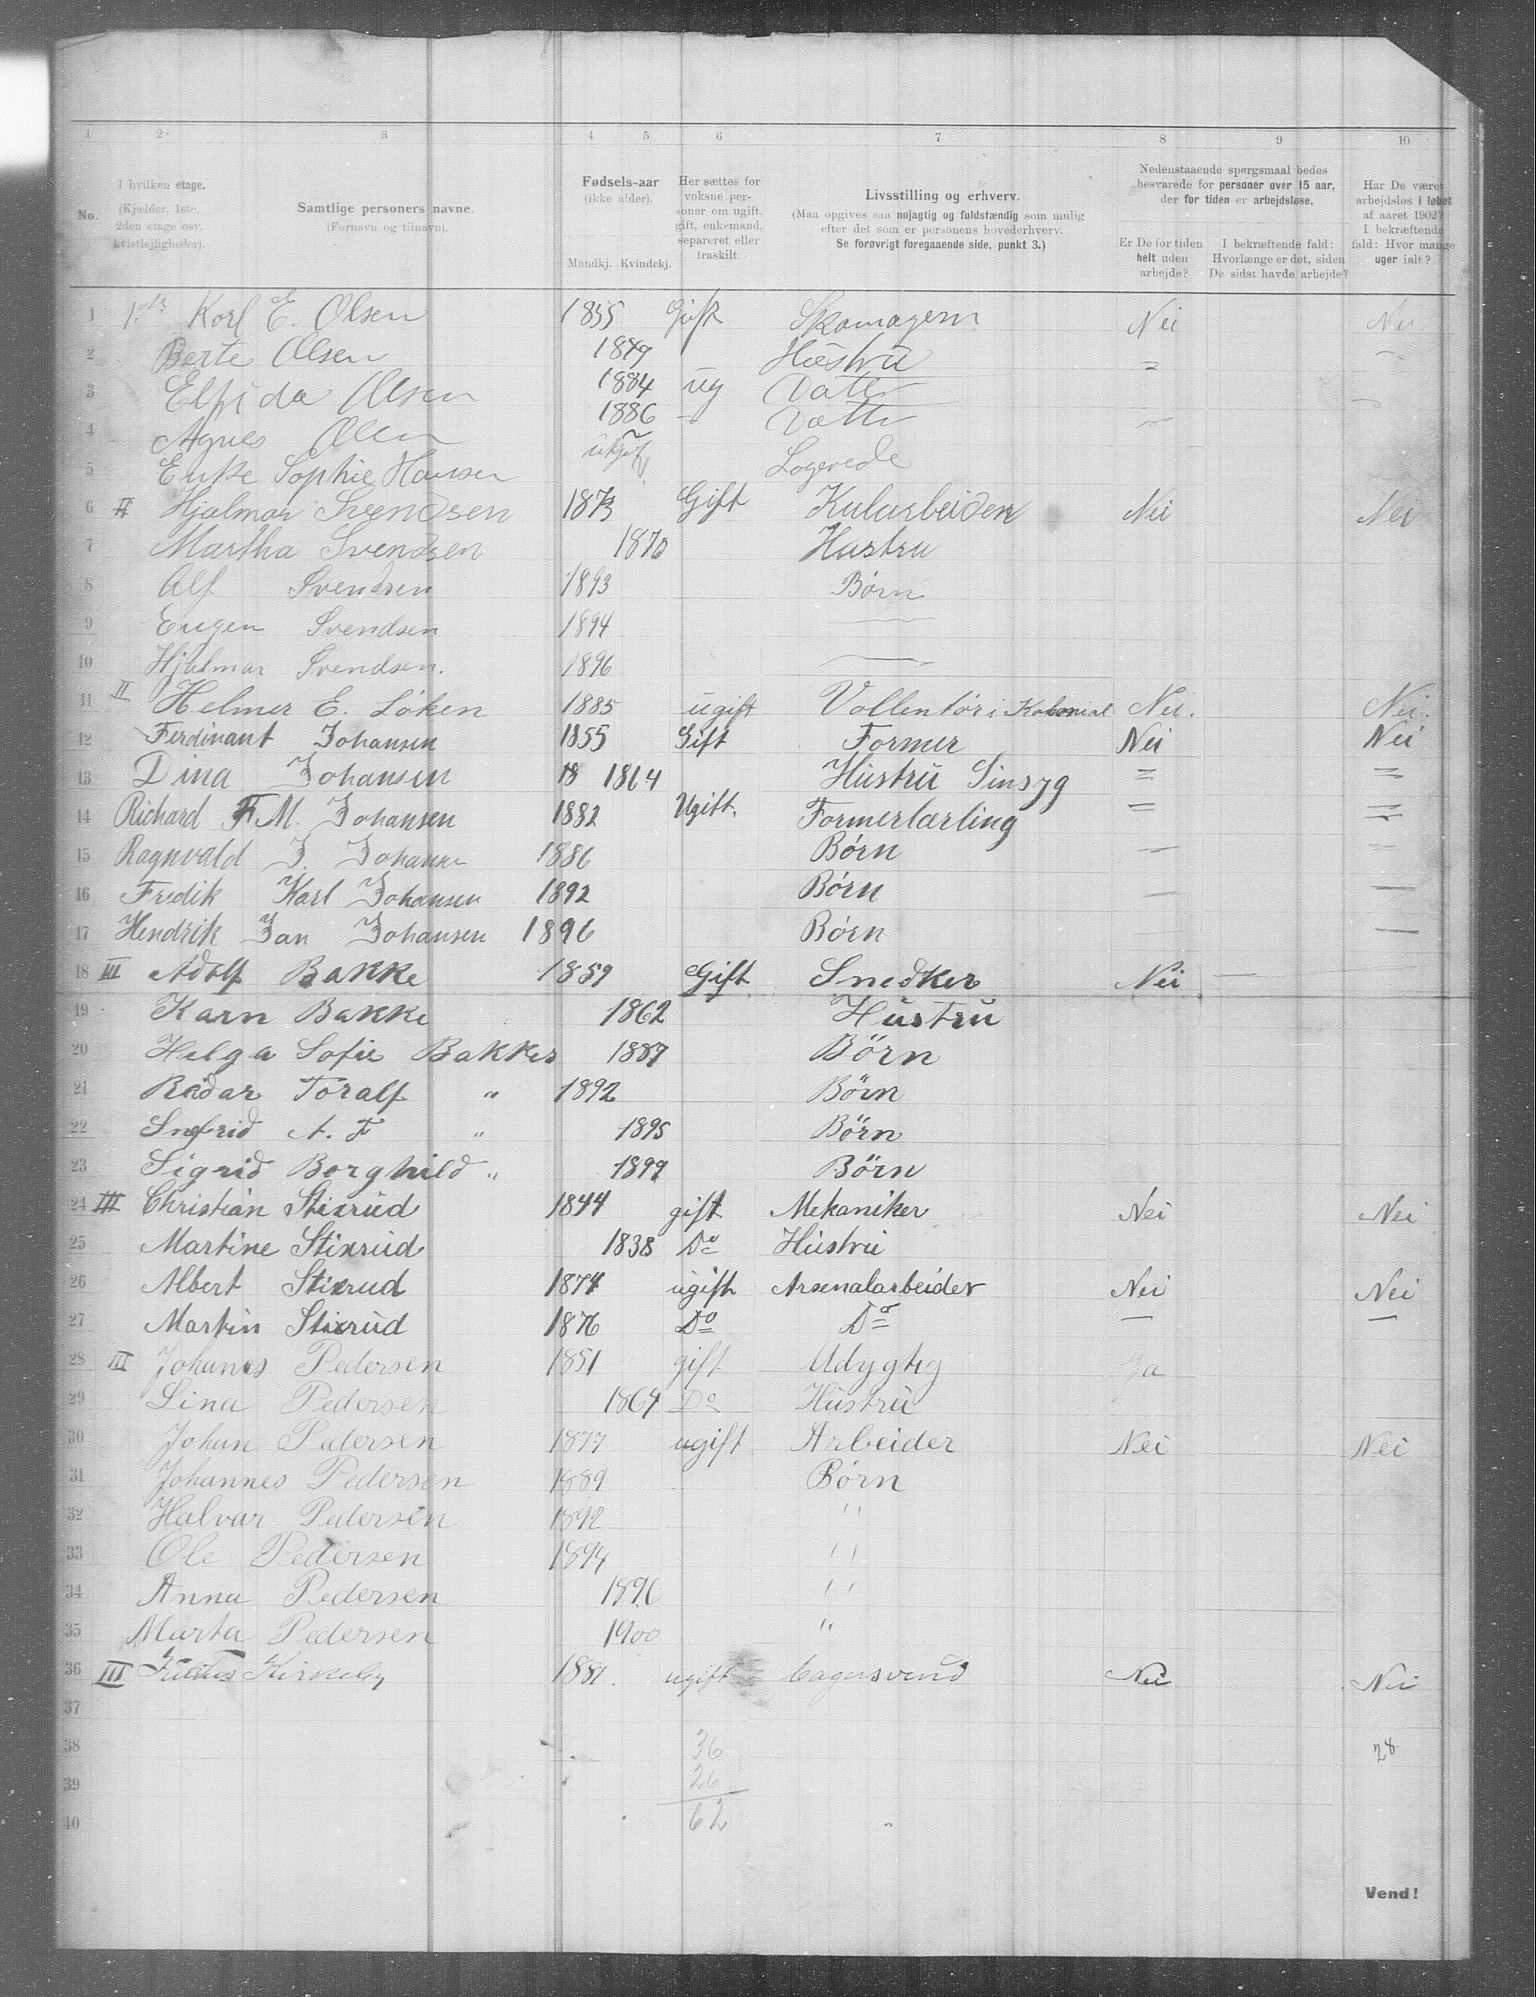 1 2 3 4 5 6 7 8 9 10
No.
I hvilken etage.
(Kjælder, 1ste, 2den etage osv. kvistlejligheder).
Samtlige personers navne.
(Fornavn og tilnavn).
Fødsels-aar
(ikke alder).
Mandkj. Kvindekj.
Her sættes for voksne personer om ugift, gift, enkemand, separeret eller fraskilt.
Livsstilling og erhverv.
(Maa opgives saa nøjagtig og fuldstændig som mulig efter det som er personens hovederhverv.
Se forøvrigt foregaaende side, punkt 3.)
Nedenstaaende spørgsmaal bedes besvarede for personer over 15 aar, der for tiden er arbejdsløse.
Er De for tiden helt uden arbejde?
I bekræftende fald: Hvorlænge er det, siden De sidst havde arbejde?
Har De været arbejdsløs i løbet af aaret 1902? I bekræftende fald: Hvor mange uger ialt?
1 1ste Karl E. Olsen 1855 Gift Skomagern Nei Nei
2 Berte Olsen 1849 Hustru =
3 Elfrida Olsen 1884 ug Datter
4 Agnes Olsen 1886 Datter
5 Enke Sophie Hansen ukjent Logerede
6 II Hjalmar Svendsen 1873 Gift Kularbeider Nei Nei
7 Martha Svendsen 1870 Hustru
8 Alf Svendsen 1893 Børn
9 Eugen Svendsen 1894 —
10 Hjalmar Svendsen. 1896 —
11 II Helmer E. Løken 1885 ugift Vollentør i Kolonial Nei. Nei.
12 Ferdinant Johansen 1855 Gift Former Nei Nei
13 Dina Johansen 18 1864 Hustru Sinsyg = =
14 Richard F. M. Johansen 1882 Ugift. Formerlærling = =
15 Ragnvald J. Johansen 1886 Børn — —
16 Fredik Karl Johansen 1892 Børn — —
17 Hendrik Jan Johansen 1896 Børn —
18 III Adolf Bakke 1859 Gift Snedker Nei —
19 Karn Bakke 1862 Hustru
20 Helga Sofie Bakke 1887 Børn
21 Reidar Toralf " 1892 Børn
22 Snefrid A. F " 1895 Børn
23 Sigrid Borghild " 1899 Børn
24 III Christian Stixrud 1844 gift Mekaniker Nei Nei
25 Martine Stixrud 1838 Do Hustru
26 Albert Stixrud 1874 ugift Arsenalarbeider Nei Nei
27 Martin Stixrud 1876 Do Do — —
28 III Johanes Pedersen 1851 gift Udygtig Ja
29 Lina Pedersen 1864 Do Hustru
30 Johan Pedersen 1877 ugift Arbeider Nei Nei
31 Johannes Pedersen 1889 Børn
32 Halvar Pedersen 1892 "
33 Ole Pedersen 1894 "
34 Anna Pedersen 1896 "
35 Marta Pedersen 1900 "
36 III Kirkeby 1881. ugift bagersvend Nei Nei
37
38 36 28
39 26
40 62
Vend!